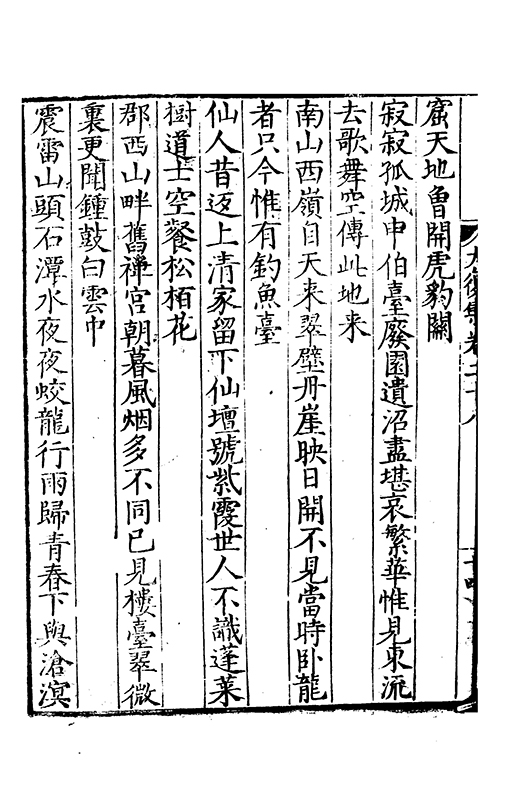 窟天地曾開虎豹關
寂寂孤城申伯臺廢園遺沼盡堪哀繁華惟見東流
去歌舞空傳此地来
南山西嶺自天来翠壁丹崖映日開不見當時卧龍
者只今惟有釣魚臺
仙人昔返上清家留下仙壇號紫霞世人不識蓬萊
樹道士空餐松栢花
郡西山畔舊禪宮朝暮風烟多不同已見樓臺翠微
裏更聞鍾鼓白雲中
震雷山頭石潭水夜夜蛟龍行雨歸青春下與滄溟
大復集卷二十八